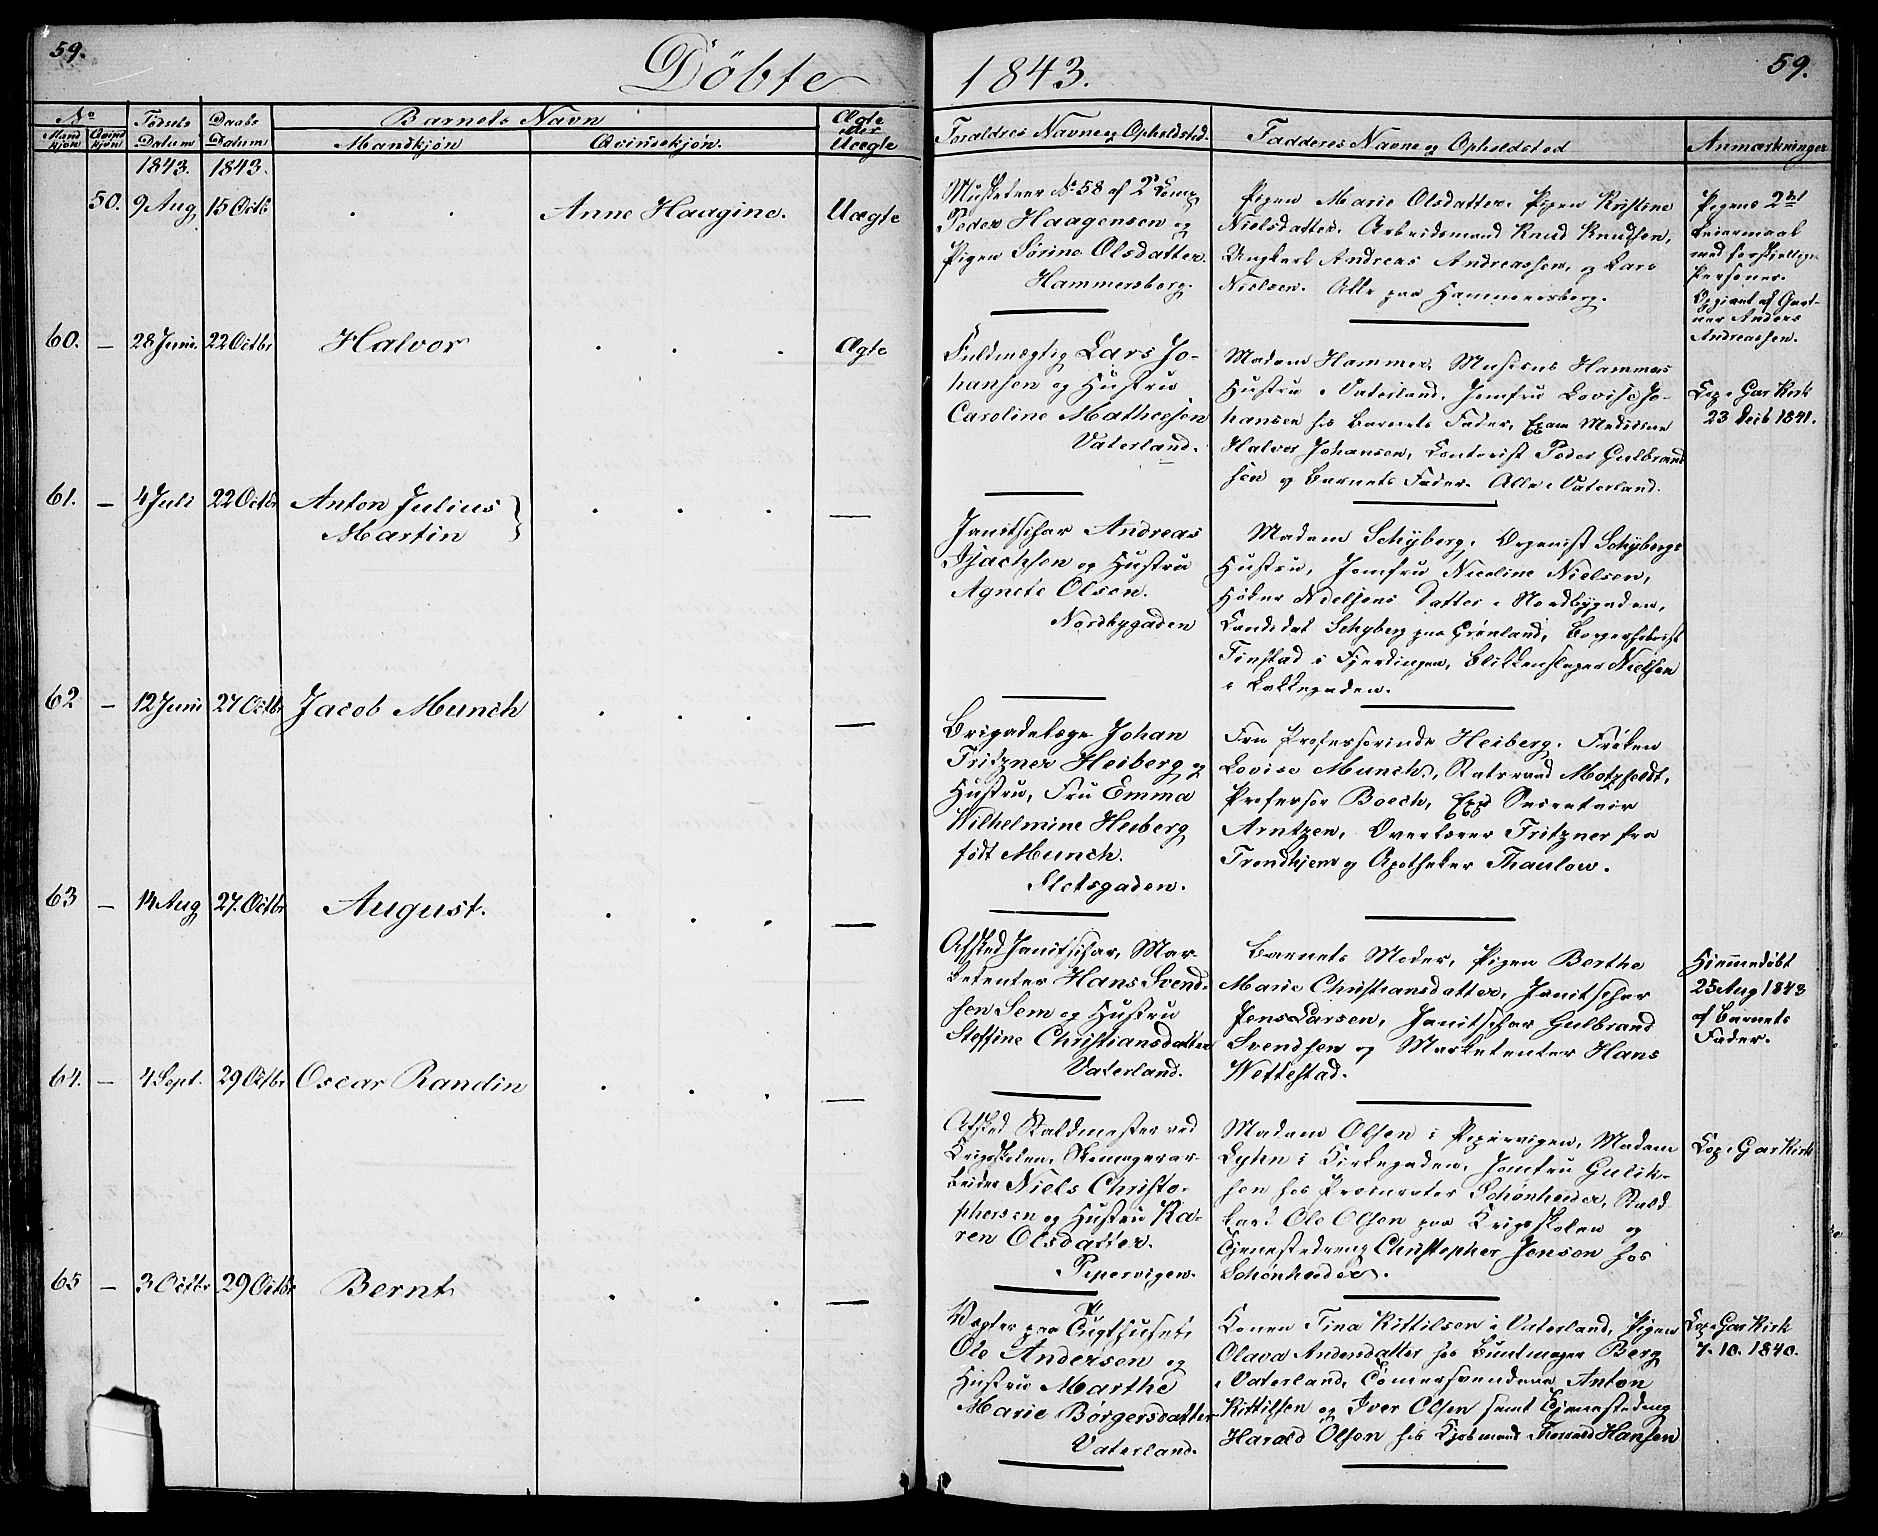 59.
Döbte
1843.
59.
No
Mand kjön
Qvind kjön
Födsels Datum
Daabs Datum
Barnets Navn
Mandkjön
Qvindekjön.
Ægte eller Uægte
Forældres Navne og Opholdsted.
Fadderes Navne og Opholdsted
Anmærkninger
1843. 1843.
50. 9 Aug 15 Octb Anne Haagine. Uægte
Musketeer No 58 af 2d Comp
Peder Haagensen og
Pigen Sörine Olsdatter.
Hammersborg.
Pigen Marie Olsdatter. Pigen Kristine
Nielsdatter. Arbeidsmand Knud Knudsen,
Ungkarl Andreas Andreassen, og Lars
Nielsen. Alle paa Hammersborg.
Pigens 2det
Leiermaal
med forskjellige
Personer.
Opgivet af Gart-
ner Anders
Andreassen.
60. – 28 Juni. 22 Octbr Halvor Ægte
Fuldmægtig Lars Jo-
hansen og Hustru
Caroline Mathesen
Vaterland.
Madam Hammer, Musicus Hammers
Hustru i Vaterland, Jomfru Lovise Jo-
hansen hos Barnets Fader, Exam Medicinæ
Halvor Johansen, Contorist Peder Gulbrand
sen og Barnets Fader. Alle i Vaterland.
Cop i Gar Kirk
23 Decb 1841.
61. – 4 Juli 22 Octbr Anton Julius
Martin } —
Janitschar Andreas
Isachsen og Hustru
Agnete Olsen.
Nordbygaden
Madam Schyberg, Organist Schybergs
Hustru, Jomfru Nicoline Nielsen,
Höker Nielsens Datter i Nordbygaden,
Candidat Schyberg paa Grönland,
Finstad i Fjerdingen, Blikkenslager Nielsen
i Lakkegaden.
62 – 12 Juni 27 Octbr Jacob Munch —
Brigadelæge Johan
Fritzner Heiberg og
Hustru, Fru Emma
Wilhelmine Heiberg
födt Munch.
Slotsgaden.
Fru Professorinde Heiberg. Fröken
Lovise Munch, Statsraad Motzfeldt,
Professor Boeck, Exp Secretair
Arntzen, Overlærer Fritzner fra
Trondhjem og Apotheker Thaulow.
63 – 14 Aug 27. Octbr August. —
Afsked Janitschar, Mar-
ketenter Hans Svend-
sen Sem og Hustru
Steffine Christiansdatter
Vaterland.
Barnets Moder, Pigen Berthe
Marie Christiansdatter, Janitschar
Jens Larsen, Janitschar Gulbrand
Svendsen og Marketenter Hans
Wettestad.
Hjemmedöbt
25 Aug 1843
af Barnets
Fader.
64. – 4 Sept. 29 Octbr Oscar Randin —
Afsked Staldmester ved
Krigsskolen, Skomagerar-
beider Niels Christo-
phersen og Hustru Ka-
ren Olsdatter.
Pipervigen.
Madam Olsen i Pipervigen, Madam
Lyhn i Kirkegaden, Jomfru Gulik-
sen hos Procurator Schönheider, Stald
karl Ole Olsen paa Krigsskolen og
Tjenestedreng Christopher Jensen hos
Schönheider.
Cop i Gar Kirk
65 – 3 Octbr 29 Octbr Bernt —
Vægter paa Tugthuset,
Ole Andersen og
Hustru Marthe
Marie Börgersdatter
Vaterland.
Konen Tina Kittilsen i Vaterland, Pigen
Olava Andersdatter hos Buntmager Berg
i Vaterland, Tömersvendene Anton
Kittilsen og Iver Olsen samt Tjenestedreng
Harald Olsen hos Kjöbmand Thorvald Hansen
Cop i Gar Kirk
7. 10. 1840.